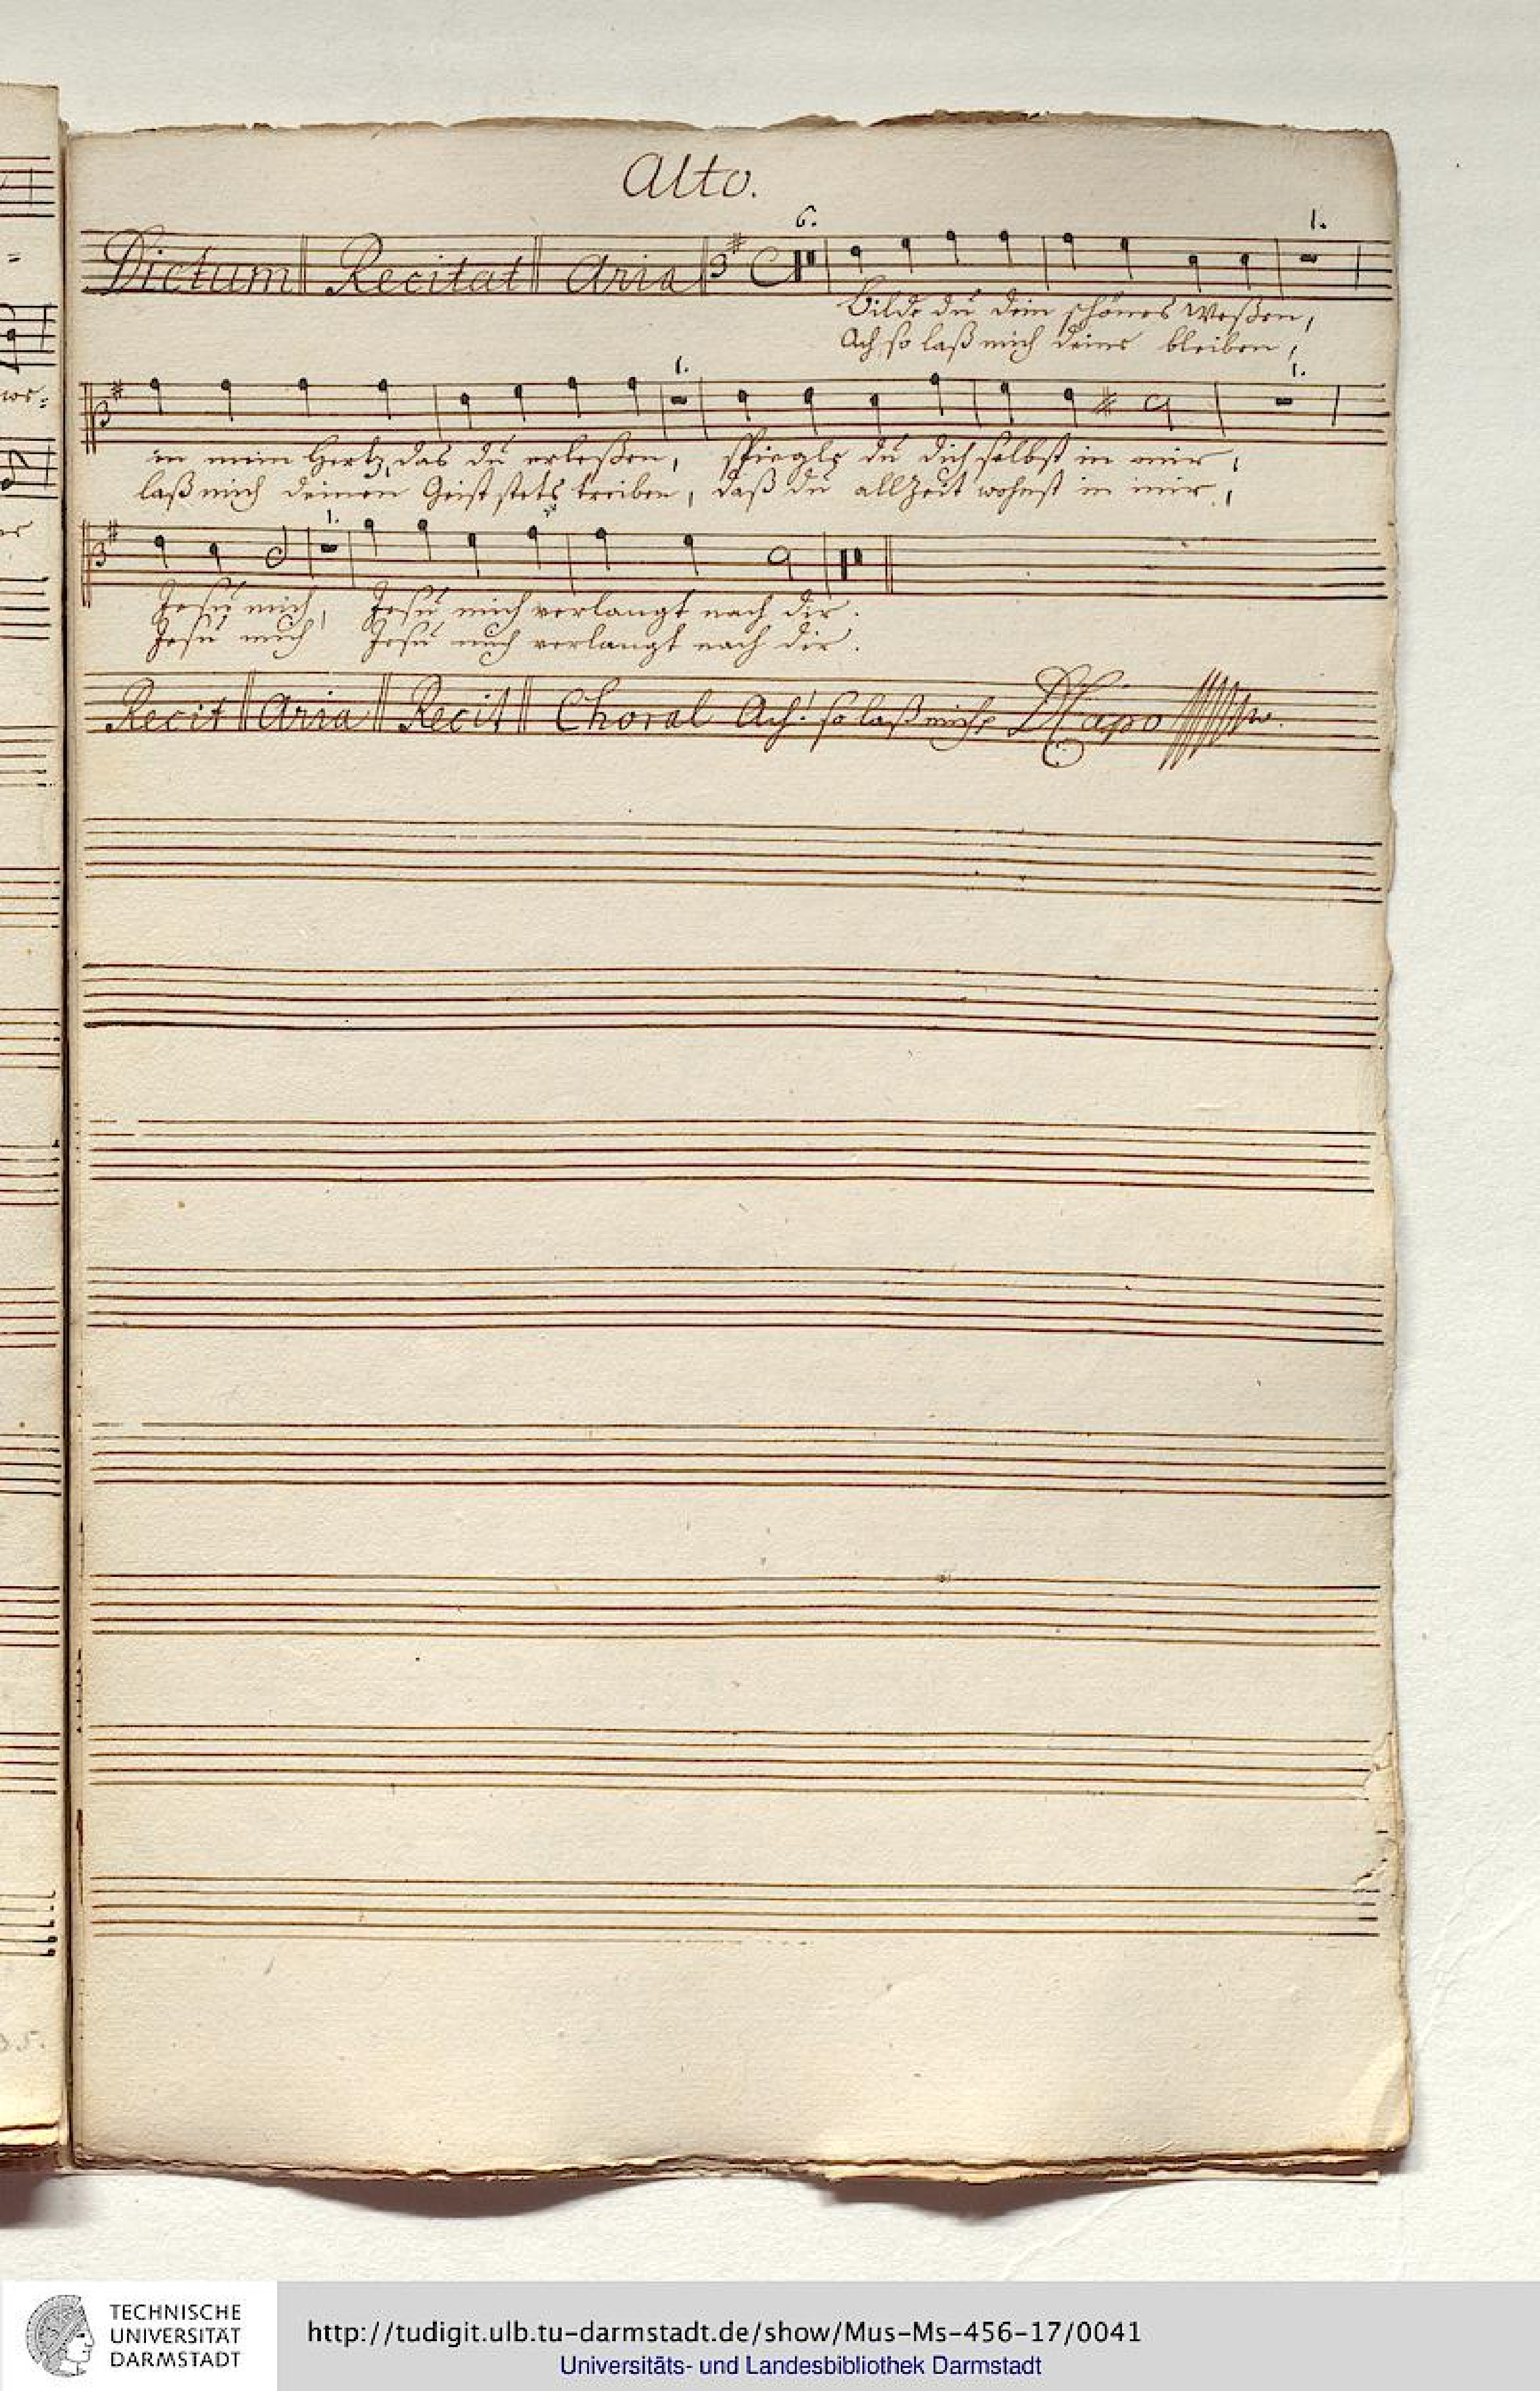 Alto.
6. 1.
Dictum Recitat Aria
Bilde du dein schönes Weßen,
Ach so laß mich deine bleiben,
1. 1.
in mein Hertz, das du erleßen, spiegle du dich selbst in mir,
laß mich deinen Geist stets treiben, daß du allzeit wohnst in mir,
1.
Jesu mich, Jesu mich verlangt nach dir.
Jesu mich Jesu mich verlangt nach dir.
Recit Aria Recit Choral Ach! so laß mich DCapo
TECHNISCHE
UNIVERSITÄT
DARMSTADT
http://tudigit.ulb.tu-darmstadt.de/show/Mus-Ms-456-17/0041
Universitäts- und Landesbibliothek Darmstadt